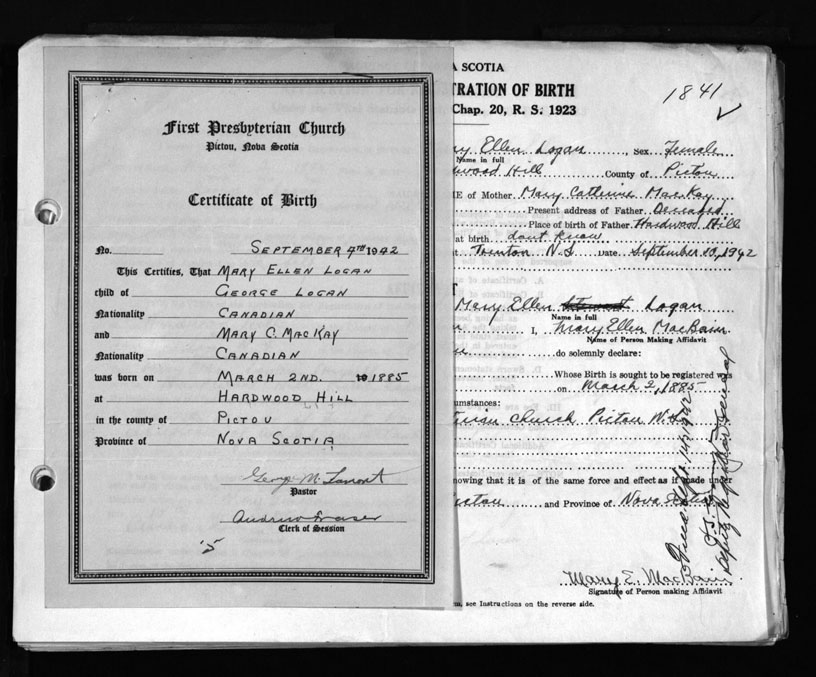 First Presbyterian Church
Pictou, Nova Scotia
Certificate of Birth
No. SEPTEMBER 4TH 1942
This Certifies, That MARY ELLEN LOGAN
child of GEORGE LOGAN
Nationality CANADIAN
and MARY C. MACKAY
Nationality CANADIAN
was born on MARCH 2ND. 1885
at HARDWOOD HILL
in the county of PICTOU
Province of NOVA SCOTIA
Pastor
Andrew Fraser
Clerk of Session
A SCOTIA
TRATION OF BIRTH
Chap. 20, R. S. 1923
1841
ry Ellen Logan, Sex Female
Name in full
dwood Hill County of Pictou
E of Mother Mary Catherine MacKay
Present address of Father Deceased
Place of birth of Father Hardwood Hill
at birth dont know
t Trenton N S Date September 10, 1942
Mary Ellen Logan
Name in full
I, Mary Ellen MacBain
Name of Person Making Affidavit
do solemnly declare:
Whose Birth is sought to be registered was
on March 2, 1885
cumstances:
terian Church Pictou N.S.
nowing that it is of the same force and effect as if made under
ictou and Province of Nova Scotia
Mary E. MacBain
Signature of Person making Affidavit
m, see Instructions on the reverse side.
Deputy Registrar General